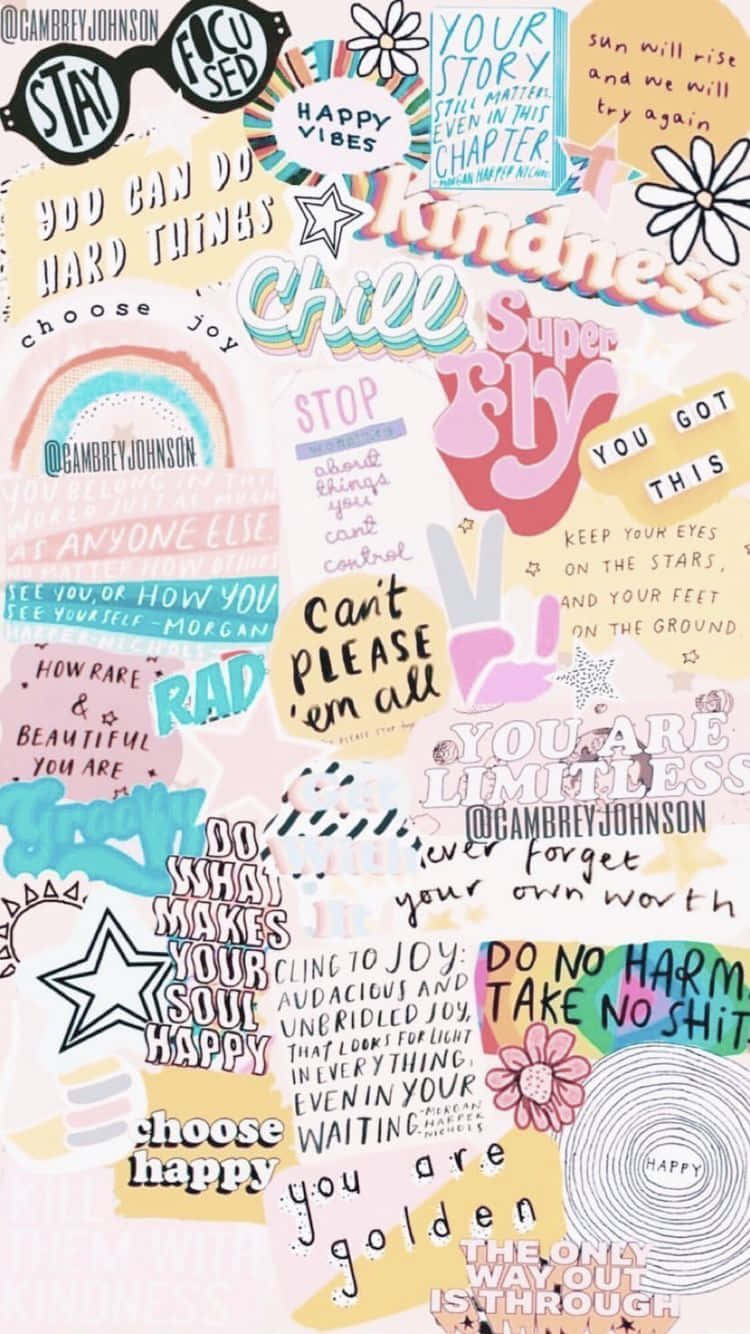 @CAMBREYJOHNSON
STAY
FOCU
SED
HAPPY
VIBES
YOUR
STORY
STILL MATTERS,
EVEN IN THIS
CHAPTER.
-MORGAN HARPER NICHOLS
sun will rise
and we will
try again
YOU CAN DO
HARD THINGS
kindness
Chill
choose joy
Super
Fly
STOP
about
things
you
can't
control
YOU GOT
THIS
@CAMBREYJOHNSON
YOU BELONG IN THIS
WORLD JUST AS MUCH
AS ANYONE ELSE.
NO MATTER HOW OTHERS
SEE YOU, OR HOW YOU
SEE YOURSELF -MORGAN
HARPER NICHOLS
KEEP YOUR EYES
ON THE STARS,
AND YOUR FEET
ON THE GROUND
can't
PLEASE
'em all
HOW RARE
&
BEAUTIFUL
YOU ARE
RAD
YOU ARE
LIMITLESS
@CAMBREYJOHNSON
Groovy
Get
With
it
never forget
your own worth
DO
WHAT
MAKES
YOUR
SOUL
HAPPY
CLING TO JOY:
AUDACIOUS AND
UNBRIDLED JOY,
THAT LOOKS FOR LIGHT
IN EVERYTHING,
EVEN IN YOUR
WAITING.
-MORGAN
HARPER
NICHOLS
DO NO HARM
TAKE NO SHIT.
choose
happy
HAPPY
you are
golden
KILL
THEM WITH
KINDNESS
THE ONLY
WAY OUT
IS THROUGH